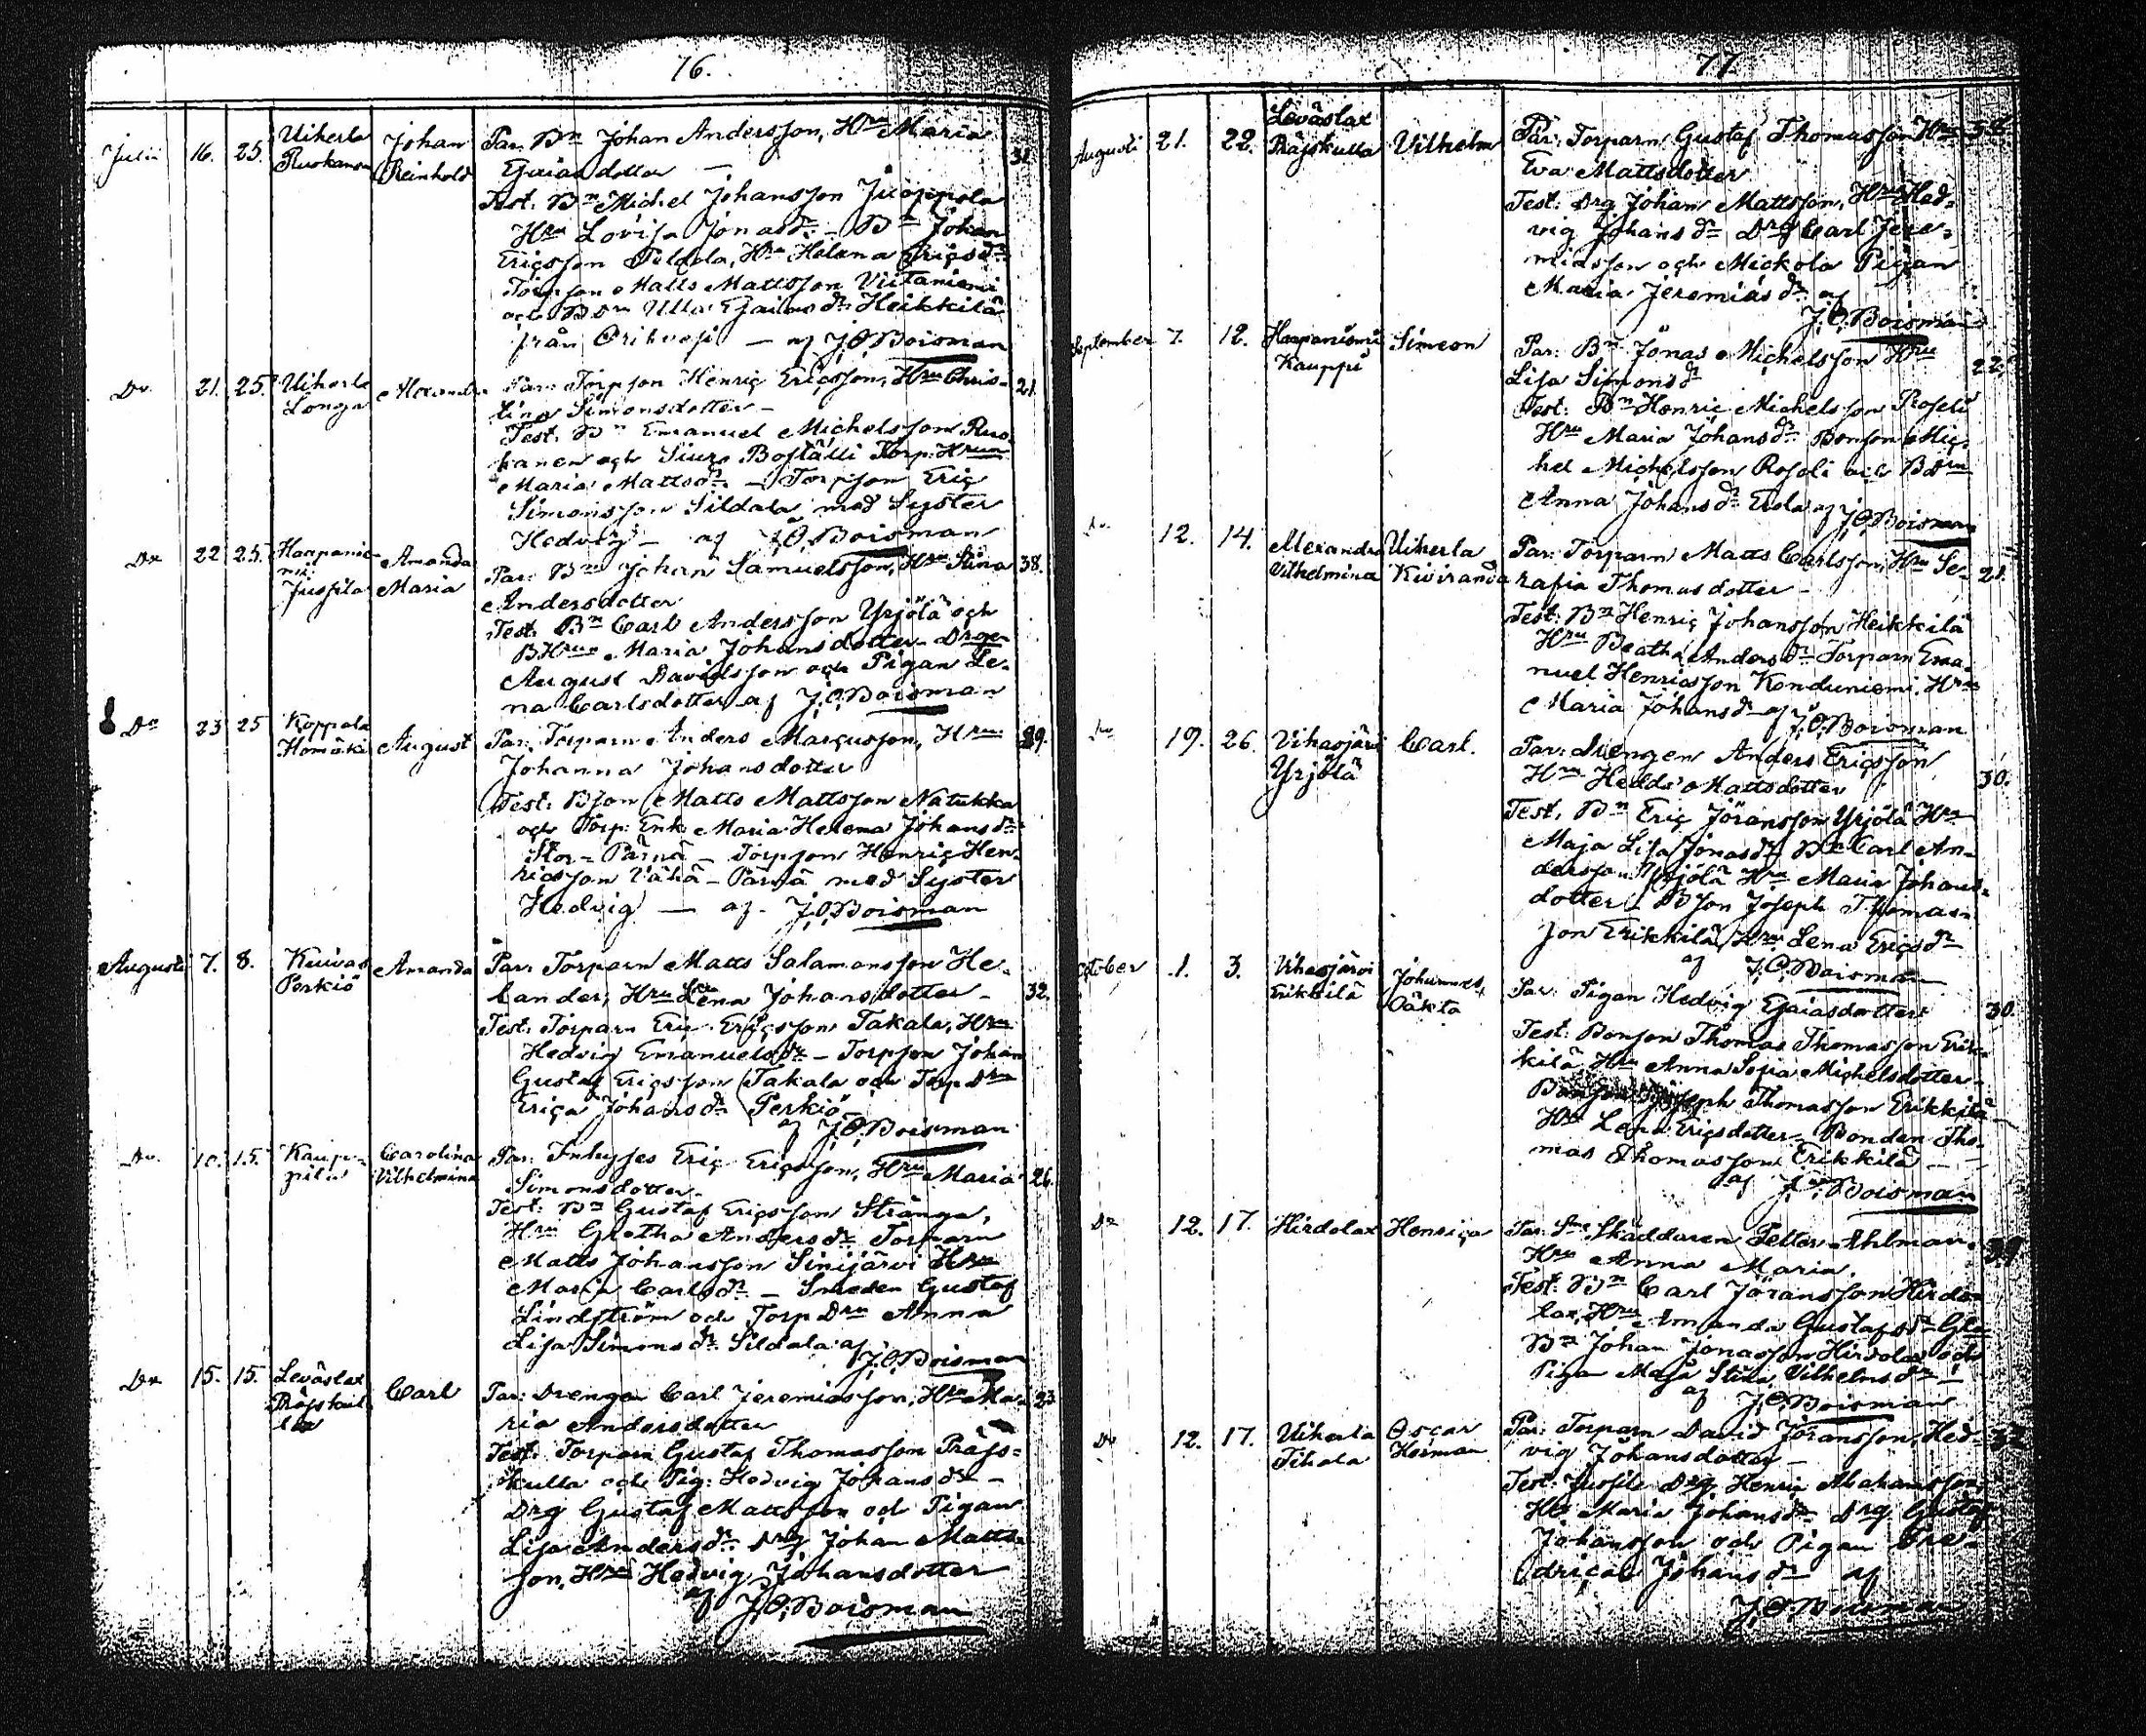 76.
Julii 16. 25. Uiherla Johan Par. Bn Johan Andersson, Hru Maria 31.
Ruokanen Reinhold Esaiasdotter —
Test. Bn Michel Johansson Juoppola
Hru Lovisa Jonasdr. — Bn Johan
Ericsson Sildala, Hru Helena Ericsdr
Torpson Matts Mattsson Viitaniemi
och BDr Ulla Esaiasdr Heikkilä
från Orihvesi — af J.O. Boisman
Do 21. 25. Uiherla Alexander Par. Torpson Henric Ericsson, Hru Chris- 21.
Longa tina Simonsdotter —
Test. Bn Emanuel Michelsson Ruo-
kanen och Siuro Boställi Torp. Hrun
Maria Mattsdr. — Torpson Eric
Simonsson Sildala med Syster
Hedvig — af J.O. Boisman
Do 22 25. Haapanie- Amanda Par. Bn Johan Samuelsson, Hru Stina 38.
mi Maria Andersdotter
Jussila Test. Bn Carl Andersson Yrjölä och
BHrun Maria Johansdotter — Drgen
August Davidsson och Pigan Le-
na Carlsdotter af J.O. Boisman
Do 23 25 Koppala August Par. Torparn Anders Marcusson, Hru 29.
Homäki Johanna Johansdotter
Test. BSon Matts Mattsson Natukka
och Torp. Enk. Maria Helena Johansdr
Stor-Pärnä — Torpson Henric Hen-
ricsson Vähä-Pärnä med Syster
Hedvig — af. J.O. Boisman
Augusti 7. 8. Kuivas Amanda Par. Torparn Matts Salamonsson He-
Perkiö lander, Hru Lena Johansdotter — 32.
Test. Torparn Eric Ericsson Takala, Hru
Hedvig Emanuelsdr — Torpson Johan
Gustaf Ericsson Takala och Torp Dru
Erica Johansdr Perkiö
af J.O. Boisman
Do. 10. 15. Kaup- Carolina Par. Inhyses Eric Ericsson, Hru Maria 26.
pila Vilhelmina Simonsdotter.
Test. Bn Gustaf Ericsson Stränga,
Hru Gretha Andersdr Torparn
Matts Johansson Sinijärvi Hru
Maria Carlsdr. — Smeden Gustaf
Lindström och Torp Dru Anna
Lisa Simonsdr. Sildala af
J.O. Boisman
Do 15. 15. Leväslax Carl Par: Drengen Carl Jeremiasson, Hru Ma- 23
Präjskul- ria Andersdotter
la Test. Torparn Gustaf Thomasson Präjs-
kulla och Pig. Hedvig Johansdr —
Drg Gustaf Mattsson och Pigan
Lisa Andersdr. Drg Johan Matts-
son, Hru Hedvig Johansdotter
af J.O. Boisman
77.
Augusti 21. 22. Leväslax Vilhelm Par: Torparn Gustaf Thomasson Hru
Präjskulla Eva Mattsdotter
Test: Drg Johan Mattsson, Hru Hed-
vig Johansdr Drg Carl Jere-
miasson och Mickola Pigan
Maria Jeremiasdr. af
J.O. Boisman
September 7. 12. Haapaniemi Simeon Par: Bn Jonas Michelsson Hru 22.
Kauppi Lisa Simonsdr
Test. Bn Henric Michelsson Rosoli
Hru Maria Johansdr Bonson Mic-
hel Michelsson Rosoli och BDru
Anna Johansdr Erola af J.O. Boisman
Do 12. 14. Alexandra Uiherla Par: Torparn Matts Carlsson, Hru Se- 21.
Vilhelmina Kiviranda rafia Thomasdotter —
Test. Bn Henric Johansson Heikkilä
Hru Beatha Andersdr Torparn Ema-
nuel Henricsson Konduniemi, Hru
Maria Johansdr af J.O. Boisman
Do 19. 26. Vihasjärvi Carl. Par: Drengen Anders Ericsson
Yrjölä Hru Hedda Mattsdotter 30.
Test. Bn Eric Jöransson Yrjölä Hru
Maja Lisa Jonasdr Bn Carl An-
dersson Yrjölä Hru Maria Johans-
dotter — BSon Joseph Thomas-
son Erikkilä, Hru Lena Ericsdr
af J.O. Boisman
October 1. 3. Vihasjärvi Johannes, Par. Pigan Hedvig Esaiasdotter 30.
Erikkilä Oäkta
Test: Bonson Thomas Thomasson Erik-
kilä Hru Anna Sofia Michelsdotter —
Bonson Joseph Thomasson Erikkilä
Hru Lena Ericsdotter — Bonden Tho-
mas Thomasson Erikkilä —
af J.O. Boisman
Do 12. 17. Hirdolax Henrica Par. Skäddaren Petter Ahlman,
Hru Anna Maria.
Test. Bn Carl Jöransson Hirdo-
lax, Hru Amanda Gustafsdr
Bn Johan Jonasson Hirdolax och
Pigan Maja Stina Vilhelmsdr —
af J.O. Boisman
Do 12. 17. Uiherla Oscar Par. Torparn David Jöransson, Hed-
Tihala Herman vig Johansdotter —
Test. Drg Henric Abrahamsson,
Hru Maria Johansdr Drg Gustaf
Johansson och Pigan Fre-
drica Johansdr af
J.O. Boisman